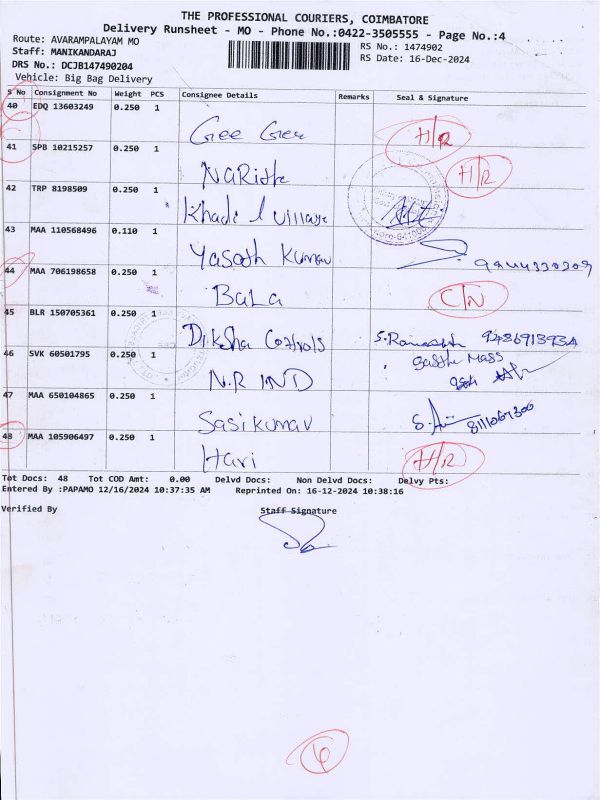 THE PROFESSIONAL COURIERS, COIMBATORE
Delivery Runsheet - MO - Phone No.:0422-3505555 - Page No.:4
Route: AVARAMPALAYAM MO
Staff: MANIKANDARAJ
DRS No.: DCJB147490204
Vehicle: Big Bag Delivery
RS No.: 1474902
RS Date: 16-Dec-2024
S No Consignment No Weight PCS Consignee Details Remarks Seal & Signature
40 EDQ 13603249 0.250 1 Gree Greu H/R
41 SPB 10215257 0.250 1 H/R
42 TRP 8198509 0.250 1 Khadi Village
43 MAA 110568496 0.110 1 Kumar
44 MAA 706198658 0.250 1 BaLa C/N
45 BLR 150705361 0.250 1 Diksha Controls
46 SVK 60501795 0.250 1 N.R IND
47 MAA 650104865 0.250 1 Sasikumar
48 MAA 105906497 0.250 1 Hari H/R
Tot Docs: 48 Tot COD Amt: 0.00 Delvd Docs: Non Delvd Docs: Delvy Pts:
Entered By :PAPAMO 12/16/2024 10:37:35 AM Reprinted On: 16-12-2024 10:38:16
Verified By Staff Signature